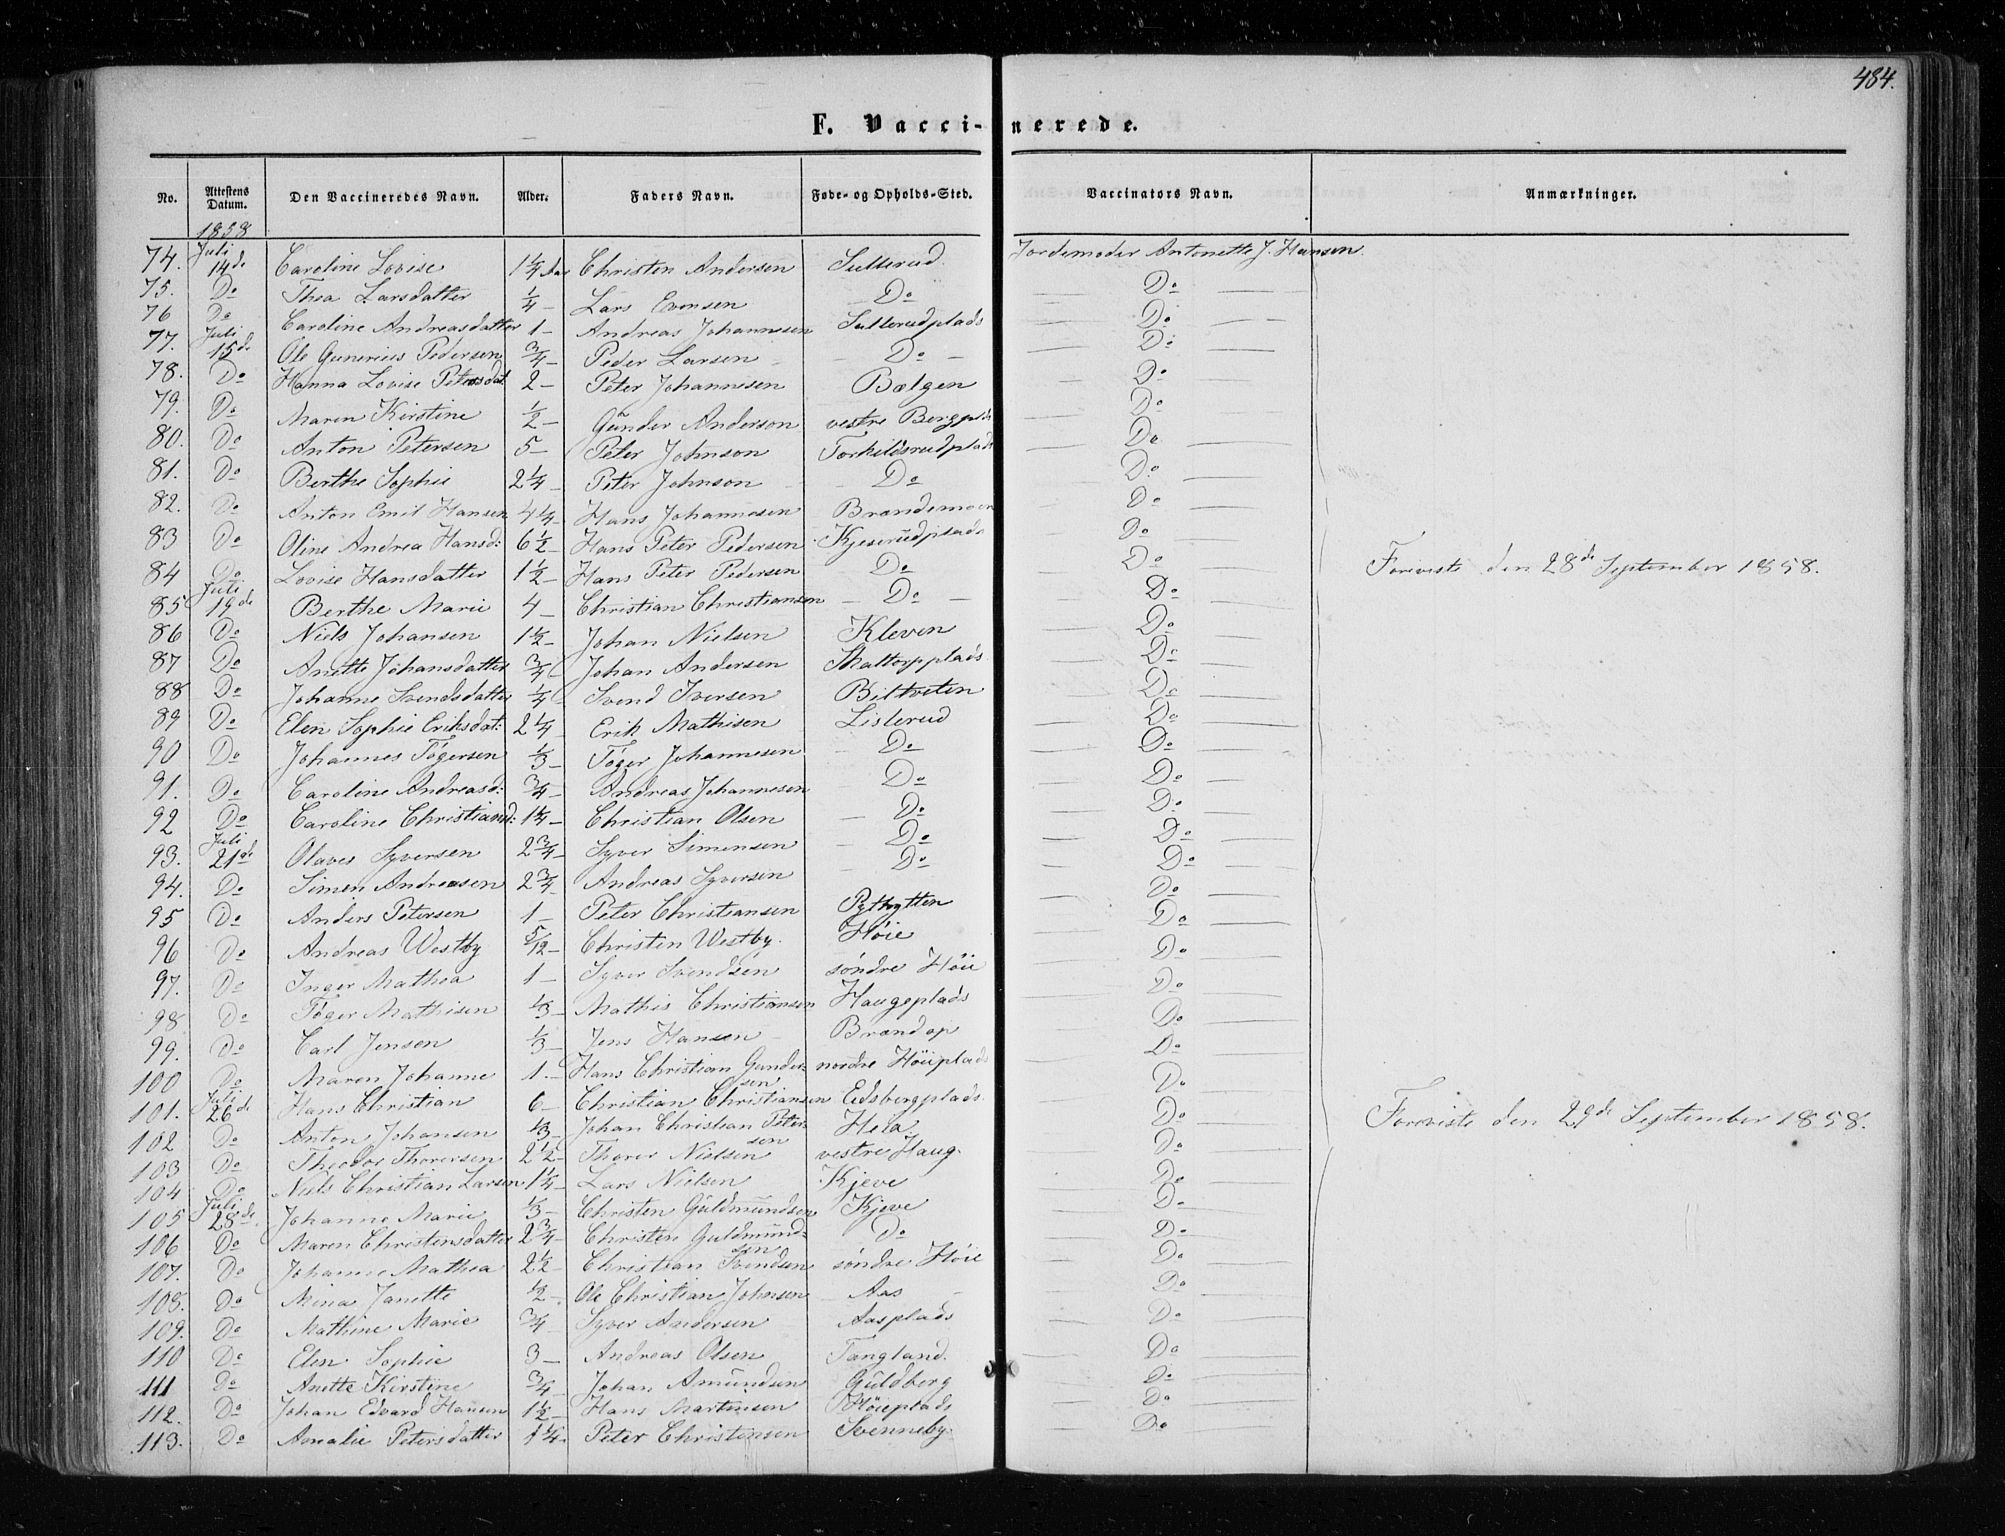 484.
F. Vacci-nerede.
No. Attestens Datum. Den Vaccineredes Navn. Alder. Faders Navn. Føde- og Opholds-Sted. Vaccinators Navn. Anmærkninger.
1858
74. Juli 14de Caroline Lovise 1 1/4 Christen Andersen Sullerud Jordemoder Antonette J. Hansen.
75. Do Thea Larsdatter 1/4 – Lars Evensen Do — Do —
76 Do Caroline Andreasdatter 1 – Andreas Johannesen Sullerudplads — Do —
77. Juli 15de Ole Gunerius Pedersen 3/4 – Peder Larsen – Do – — Do —
78. Do Hanna Lovise Petersdat 2 – Peter Johannesen Bælgen — Do —
79. Do Maren Kirstine 1/2 – Gunder Anderson vestre Bergplds — Do —
80. Do Anton Petersen 5 – Peter Johnson Torkildsrudplads — Do —
81. Do Berthe Sophie 2 1/4 – Peter Johnson – Do — Do —
82. Do Anton Emil Hansen 4 1/4 – Hans Johannesen Brændemoen — Do —
83 Do Oline Andrea Hansd: 6 1/2 – Hans Peter Pedersen Kjeserudplads — Do —
84 Do Lovise Hansdatter 1 1/2 – Hans Peter Pedersen Do — Do — Foreviste den 28de September 1858.
85 Juli 19de Berthe Marie 4 – Christian Christiansen – Do – — Do —
86 Do Niels Johansen 1 1/2 – Johan Nielsen Kleven — Do —
87 Do Anette Johansdatter 3/4 Johan Andersen Skattorpplads — Do —
88 Do Johanne Svendsdatter 1/4 Svend Iversen Biltveten — Do —
89 Do Elen Sophie Eriksdat: 2 1/4 – Erik Mathisen Listerud — Do —
90 Do Johannes Tøgersen 1/3 – Tøger Johannesen – Do — Do —
91. Do Caroline Andreasd: 3/4 – Andreas Johannesen Do — Do —
92 Do Caroline Christiansd: 1 1/4 – Christian Olsen – Do — Do —
93. Juli 21de Olaves Syversen 2 3/4 – Syver Simensen – Do — Do —
94. Do Simen Andreasen 2 3/4 – Andreas Syversen – Do — Do —
95 Do Anders Petersen 1 – Peter Christiansen Pythytten — Do —
96 Do Andreas Westby 5/12 – Christen Westby. Høie — Do —
97. Do Inger Mathea 1 – Syver Svendsen søndre Høie — Do —
98 Do Tøger Mathisen 1/3 – Mathis Christiansen Haugeplads — Do —
99. Do Carl Jensen 1/3 – Jens Hansen Brændop — Do —
100 Do Maren Johanne 1. – Hans Christian Gundersen nordre Høieplads — Do —
101. Juli 26de Hans Christian 6 – Christian Christiansen Edsbergplads — Do —
102 Do Anton Johansen 1/3 – Johan Christian Petersen Heia — Do — Foreviste den 29de September 1858.
103 Do Theodor Thorersen 2 1/2 – Thorer Nielsen vestre Haug. — Do —
104 Do Niels Christian Larsen 1 1/4 – Lars Nielsen Kjeve — Do —
105 Juli 28de Johanne Marie 1/3 – Christen Guldmundsen Kjeve — Do —
106 Do Maren Christensdatter 2 3/4 – Christen Guldmundsen Do — Do —
107. Do Johanne Mathea 2 1/2 – Christian Svendsen søndre Høie — Do —
108. Do Mina Janette 1/2 – Ole Christian Johnsen – Aas – — Do —
109. Do Mathine Marie 3/4 – Syver Andersen Aasplads — Do —
110 Do Elen Sophie 3 – Andreas Olsen Tangland. — Do —
111 Do Anette Kirstine 3/4 – Johan Amundsen Guldberg — Do —
112. Do Johan Edvard Hansen 1 1/2 – Hans Martinsen Høieplads — Do —
113. Do Amalie Petersdatter 1 1/4. Peter Christensen Svenneby. — Do —